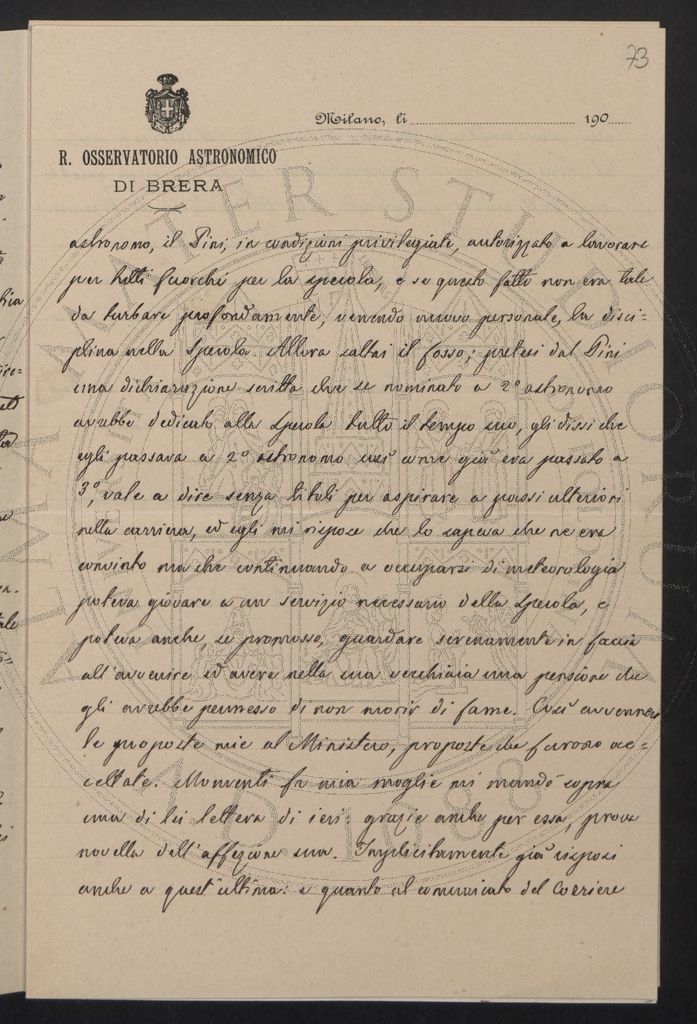 73
Milano, li 190
R. OSSERVATORIO ASTRONOMICO
DI BRERA
astronomo, il Pini, in condizioni privilegiate, autorizzato a lavorare
per tutti fuorché per la specola, e se questo fatto non era tale
da turbare profondamente, venendo nuovo personale, la disci=
plina nella Specola. Allora saltai il fosso; pretesi dal Pini
una dichiarazione scritta che se nominato a 2º astronomo
avrebbe dedicato alla Specola tutto il tempo suo, gli dissi che
egli passava a 2º astronomo così come già era passato a
3º, vale a dire senza titoli per aspirare a passi ulteriori
nella carriera, ed egli mi rispose che lo sapeva che ne era
convinto ma che continuando a occuparsi di meteorologia
poteva giovare a un servizio necessario della Specola, e
poteva anche, se promosso, guardare serenamente in faccia
all'avvenire ed avere nella sua vecchiaia una pensione che
gli avrebbe permesso di non morir di fame. Così avvennero
le proposte mie al Ministero, proposte che furono ac=
cettate. Momenti fa mia moglie mi mandò sopra
una di lei lettera di ieri: grazie anche per essa, prova
novella dell'affezione sua. Implicitamente già risposi
anche a quest'ultima: e quanto al comunicato del Corriere
ALMA MATER STUDIORUM
A.D. 1088